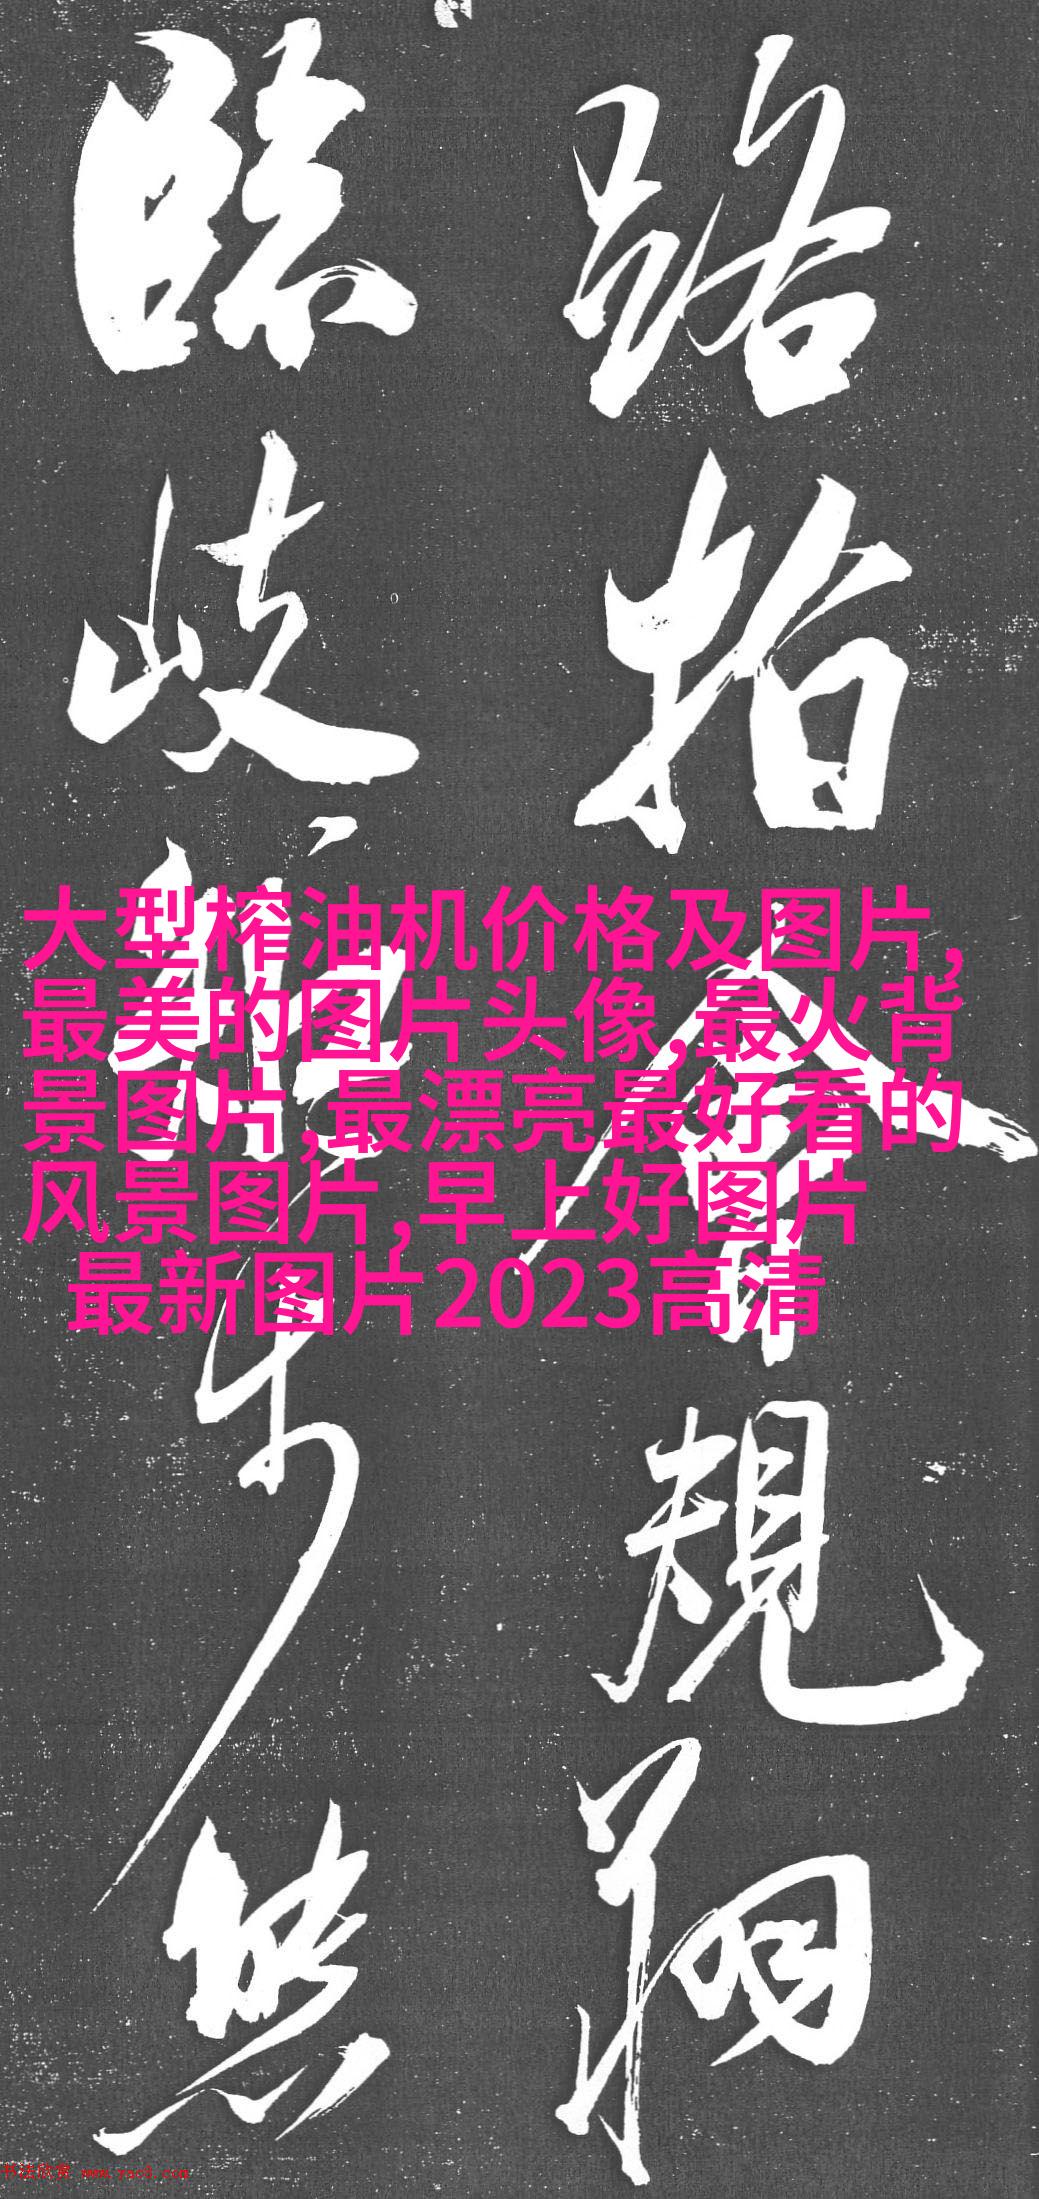 路指命規翔
臨岐
步無
大型榨油机价格及图片,
最美的图片头像,最火背
景图片,最漂亮最好看的
风景图片,早上好图片
最新图片2023高清
书法欣赏 www.yac8.com